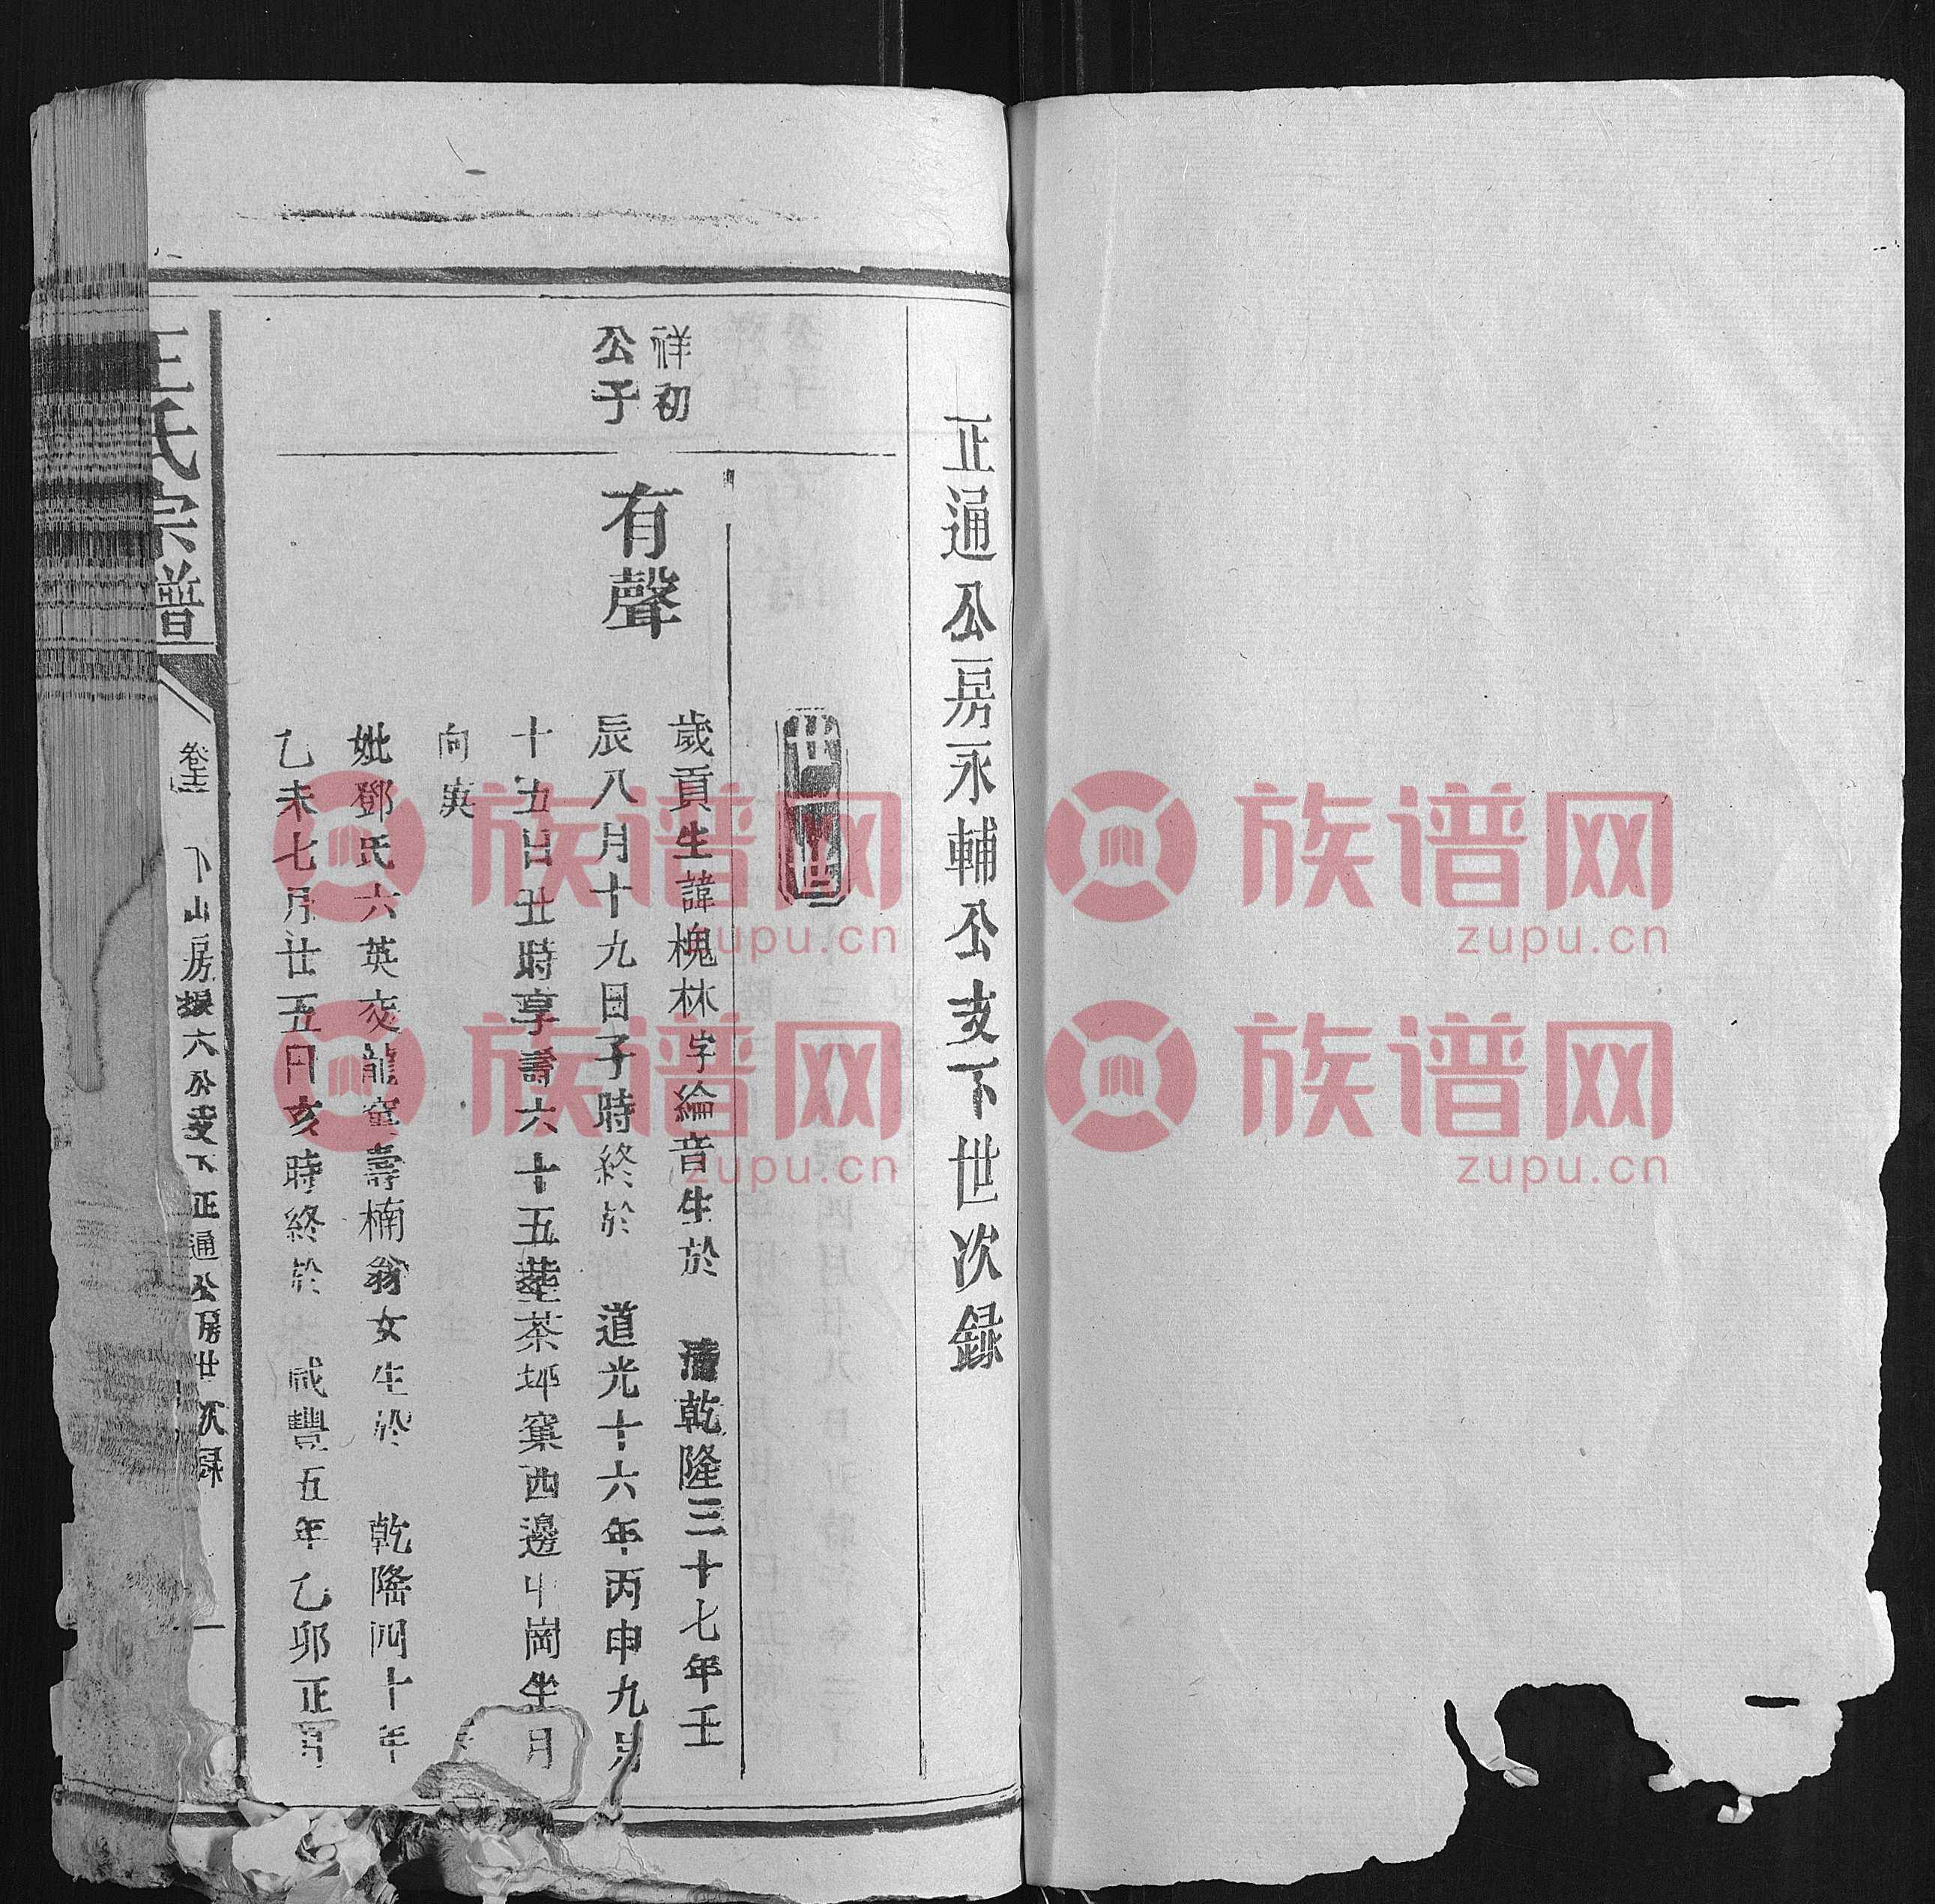 正通公房永輔公支下世次録
世
祥初
公子
有聲
歲貢生諱槐林字綸音生於 清乾隆三十七年壬
辰八月十九日子時終於 道光十六年丙申九月
十五日丑時享壽六十五葬茶坪窠西邊 崗坐
向
妣鄧氏六英交龍窠壽楠翁女生於 乾隆四十年
乙未七月廿五日亥時終於 咸豐五年乙卯正月
王氏宗譜
卷 下山房 六公支下正通公房世次録
一
族谱网
zupu.cn
族谱网
zupu.cn
族谱网
zupu.cn
族谱网
zupu.cn